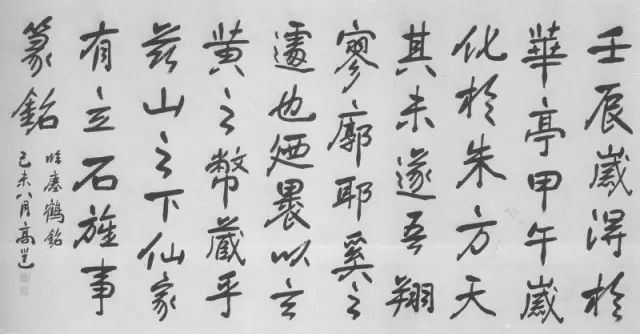 壬辰歲得於
華亭甲午歲
化於朱方天
其未遂吾翔
寥廓耶奚之
遽也廼裹以玄
黃之幣藏乎
茲山之下仙家
有立石旌事
篆銘
臨瘞鶴銘
己未八月高邕